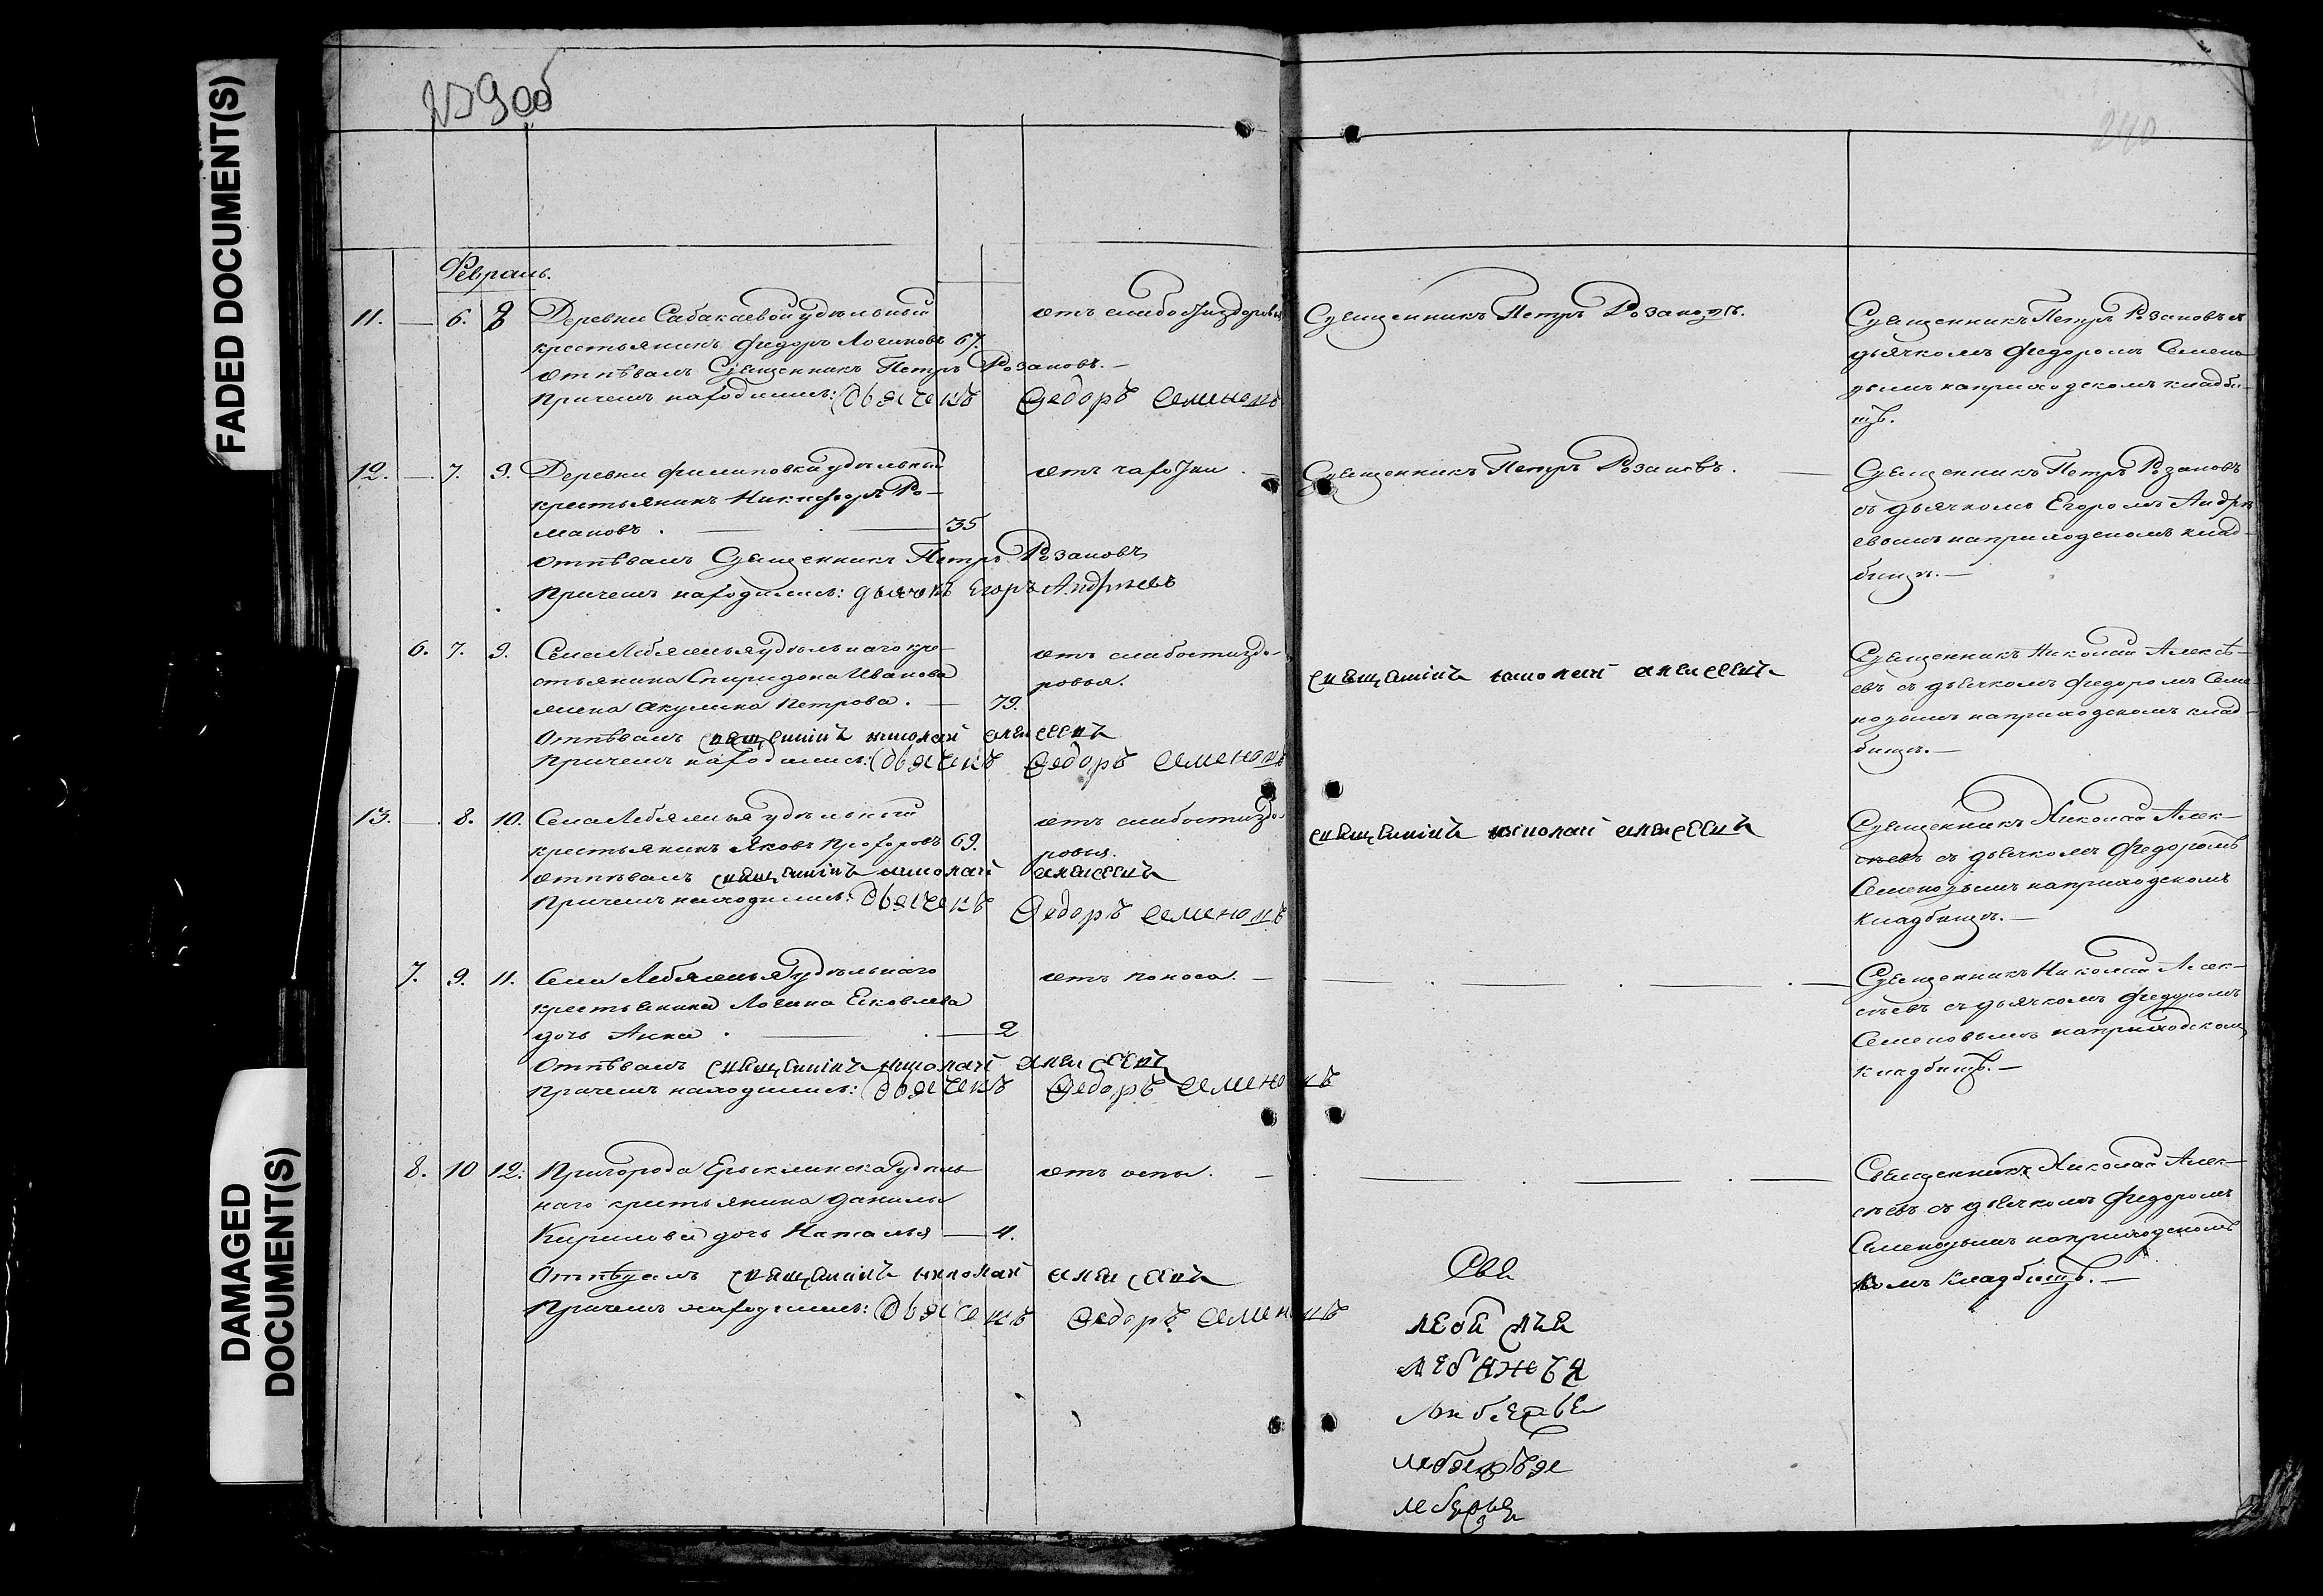 FADED DOCUMENT(S)
DAMAGED
DOCUMENT(S)
239об
240
Февраль.
11. — 6. 8 Деревни Сабакаевой удѣльный отъ слабости здоровья
крестьянинъ Федоръ Логиновъ 67.
Отпѣвалъ Священникъ Петръ Розановъ. —
Причемъ находились: Дьячекъ Федоръ Семеновъ
Священникъ Петръ Розановъ.
Священникъ Петръ Розановъ съ
дьячкомъ Федоромъ Семено
вымъ на приходскомъ кладби-
щѣ.
12. — 7. 9. Деревни Филиповки удѣльный отъ чахотки. —
крестьянинъ Никифоръ Ро-
мановъ. — 35
Отпѣвалъ Священникъ Петръ Розановъ
Причемъ находились: дьячокъ Егоръ Андреевъ
Священникъ Петръ Розановъ. —
Священникъ Петръ Розановъ
съ дьячкомъ Егоромъ Андре
евымъ на приходскомъ клад-
бищѣ. —
6. 7. 9. Села Лебяжья удѣльнаго кре- отъ слабости здо-
стьянина Спиридона Иванова ровья.
жена Акулина Петрова. — 79.
Отпѣвалъ священникъ николай алексеевъ
Причемъ находились: Дьячекъ Федоръ Семеновъ
священникъ николай алексеевъ
Священникъ Николай Алексѣ-
евъ съ дьячкомъ Федоромъ Семе-
новымъ на приходскомъ клад-
бищѣ. —
13. — 8. 10. Села Лебяжья удѣльный отъ слабости здо-
крестьянинъ Яковъ Прохоровъ 69. ровья.
Отпѣвалъ священникъ николай алексеевъ
Причемъ находились: Дьячекъ Федоръ Семеновъ
священникъ николай алексеевъ
Священникъ Николай Алек-
сѣевъ съ дьячкомъ Федоромъ
Семеновымъ на приходскомъ
кладбищѣ. —
7. 9. 11. Села Лебяжья удѣльнаго отъ поноса. —
крестьянина Логина Яковлева
дочь Анна. — 2
Отпѣвалъ священникъ николай алексеевъ
Причемъ находились: Дьячекъ Федоръ Семеновъ
Священникъ Николай Алек-
сѣевъ съ дьячкомъ Федоромъ
Семеновымъ на приходскомъ
кладбищѣ. —
8. 10 12. Пригорода Ерыклинска удѣль- отъ оспы. —
наго крестьянина Данилы
Кирилова дочь Наталья — 4.
Отпѣвалъ священникъ николай алексеевъ
Причемъ находились: Дьячекъ Федоръ Семеновъ
Священникъ Николай Алек-
сѣевъ съ дьячкомъ Федоромъ
Семеновымъ на приходскомъ
комъ кладбищѣ. —
Све
Лебяжья